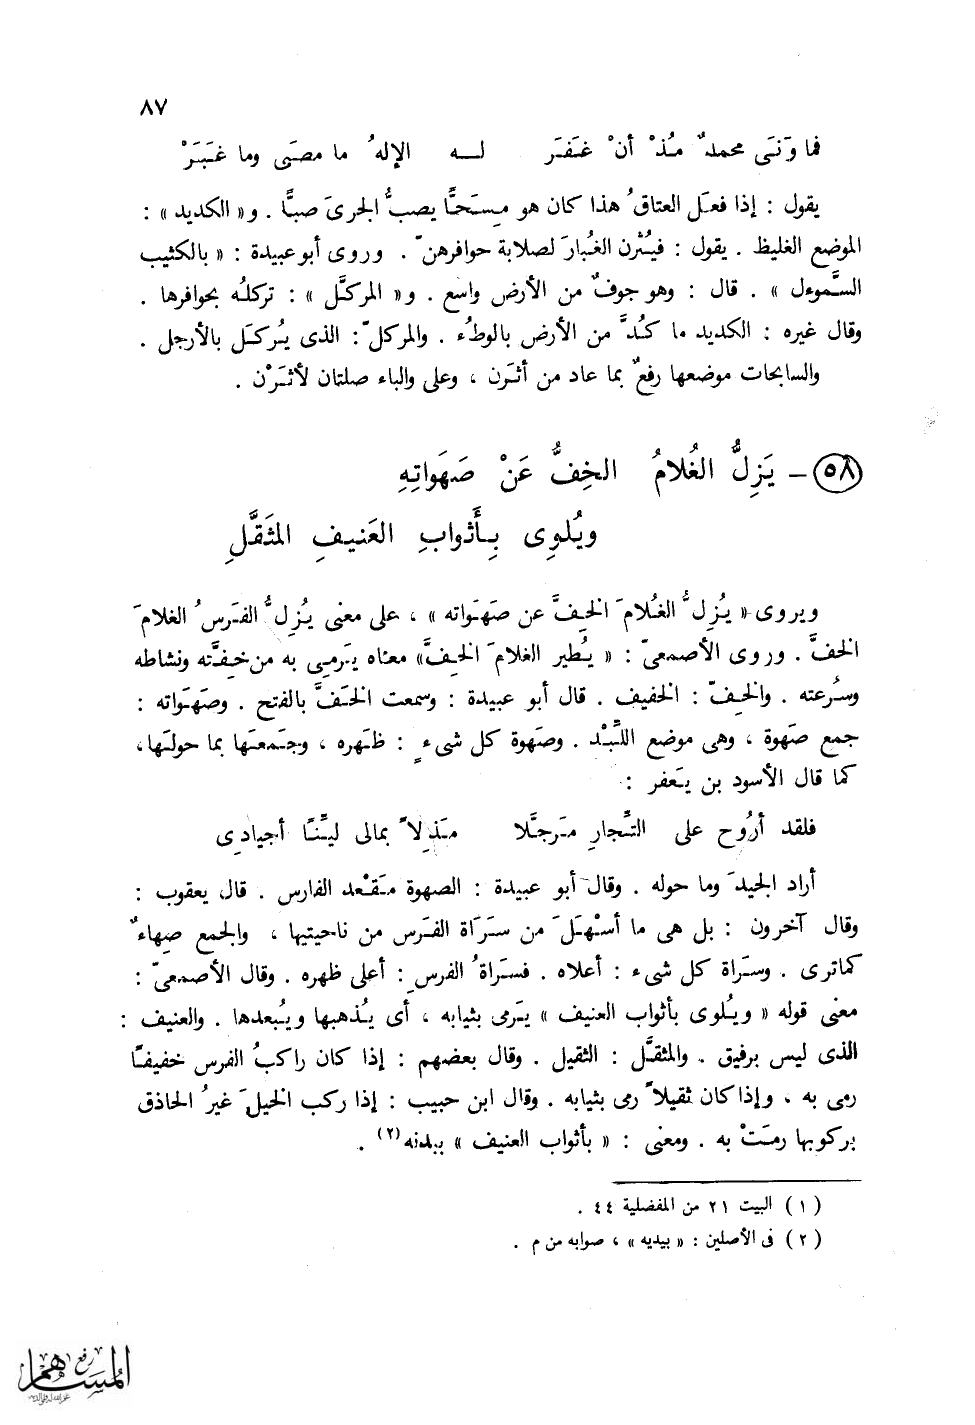 ٨٧
فما وَنَى محمدٌ مُذْ أنْ غَفَر لـه الإلهُ ما مضَى وما غَبَرْ
يقول : إذا فعَل العتاقُ هذا كان هو مِسَحًّا يصبُّ الجرىَ صبًّا . و« الكديد » :
الموضع الغليظ . يقول : فيُثرن الغُبارَ لصلابة حوافرهنّ . وروى أبو عبيدة : « بالكثيب
السَّموءل » . قال : وهو جوفٌ من الأرض واسع . و« المركَّل » : تركلُه بحوافرها .
وقال غيره : الكديد ما كُدَّ من الأرض بالوطْء . والمركلّ : الذى يُركَل بالأرجل .
والسابحات موضعها رفعٌ بما عاد من أثَرن ، وعلى والباء صلتان لأثَرْن .
٥٨ – يَزِلُّ الغُلامُ الخِفُّ عَنْ صَهَواتِهِ
ويُلوِى بِأَثوابِ العَنيفِ المثَقَّلِ
ويروى « يُزِلُّ الغُلامَ الخِفَّ عن صَهَواته » ، على معنى يُزِلُّ الفَرسُ الغلامَ
الخفَّ . وروى الأصمعىّ : « يُطير الغلامَ الخِفَّ » معناه يَرمِى به من خِفَّته ونشاطه
وسُرعته . والخِفّ : الخفيف . قال أبو عبيدة : وسمعت الخَفَّ بالفتح . وصَهَواته :
جمع صَهوة ، وهى موضع اللِّبْد . وصَهوة كل شىءٍ : ظَهره ، وجَمعَها بما حولَها ،
كما قال الأسود بن يَعفر :
فلقد أرُوح على التِّجارِ مَرجَّلا مَذِلاً بمالى ليِّنًا أجيادِى
أراد الجيدَ وما حوله . وقال أبو عبيدة : الصهوة مَقْعد الفارس . قال يعقوب :
وقال آخرون : بل هى ما أسْهَلَ من سَرَاة الفَرس من ناحيتيها ، والجمع صِهاءٌ
كما ترى . وسَراة كل شىء : أعلاه . فسَراةُ الفرسِ : أعلى ظهره . وقال الأصمعىّ :
معنى قوله « ويُلوى بأثواب العنيف » يَرمى بثيابه ، أى يُذهبها ويُبعدها . والعنيف :
الذى ليس برفيق . والمثقَّل : الثقيل . وقال بعضهم : إذا كان راكبُ الفرس خفيفًا
رمى به ، وإذا كان ثقيلاً رمى بثيابه . وقال ابن حبيب : إذا ركب الخيلَ غيرُ الحاذق
بركوبها رمَتْ به . ومعنى : « بأثواب العنيف » ببدنه (٢) .
(١) البيت ٢١ من المفضلية ٤٤ .
(٢) فى الأصلين : « بيديه » ، صوابه من م .